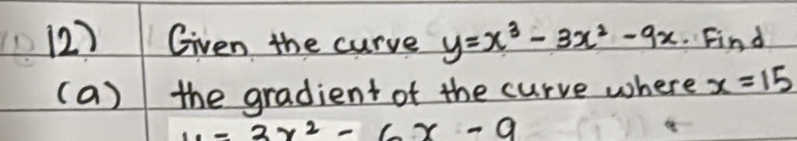 12) Given the curve y=x³-3x²-9x. Find
(a) the gradient of the curve where x=15
y=3x²-6x-9